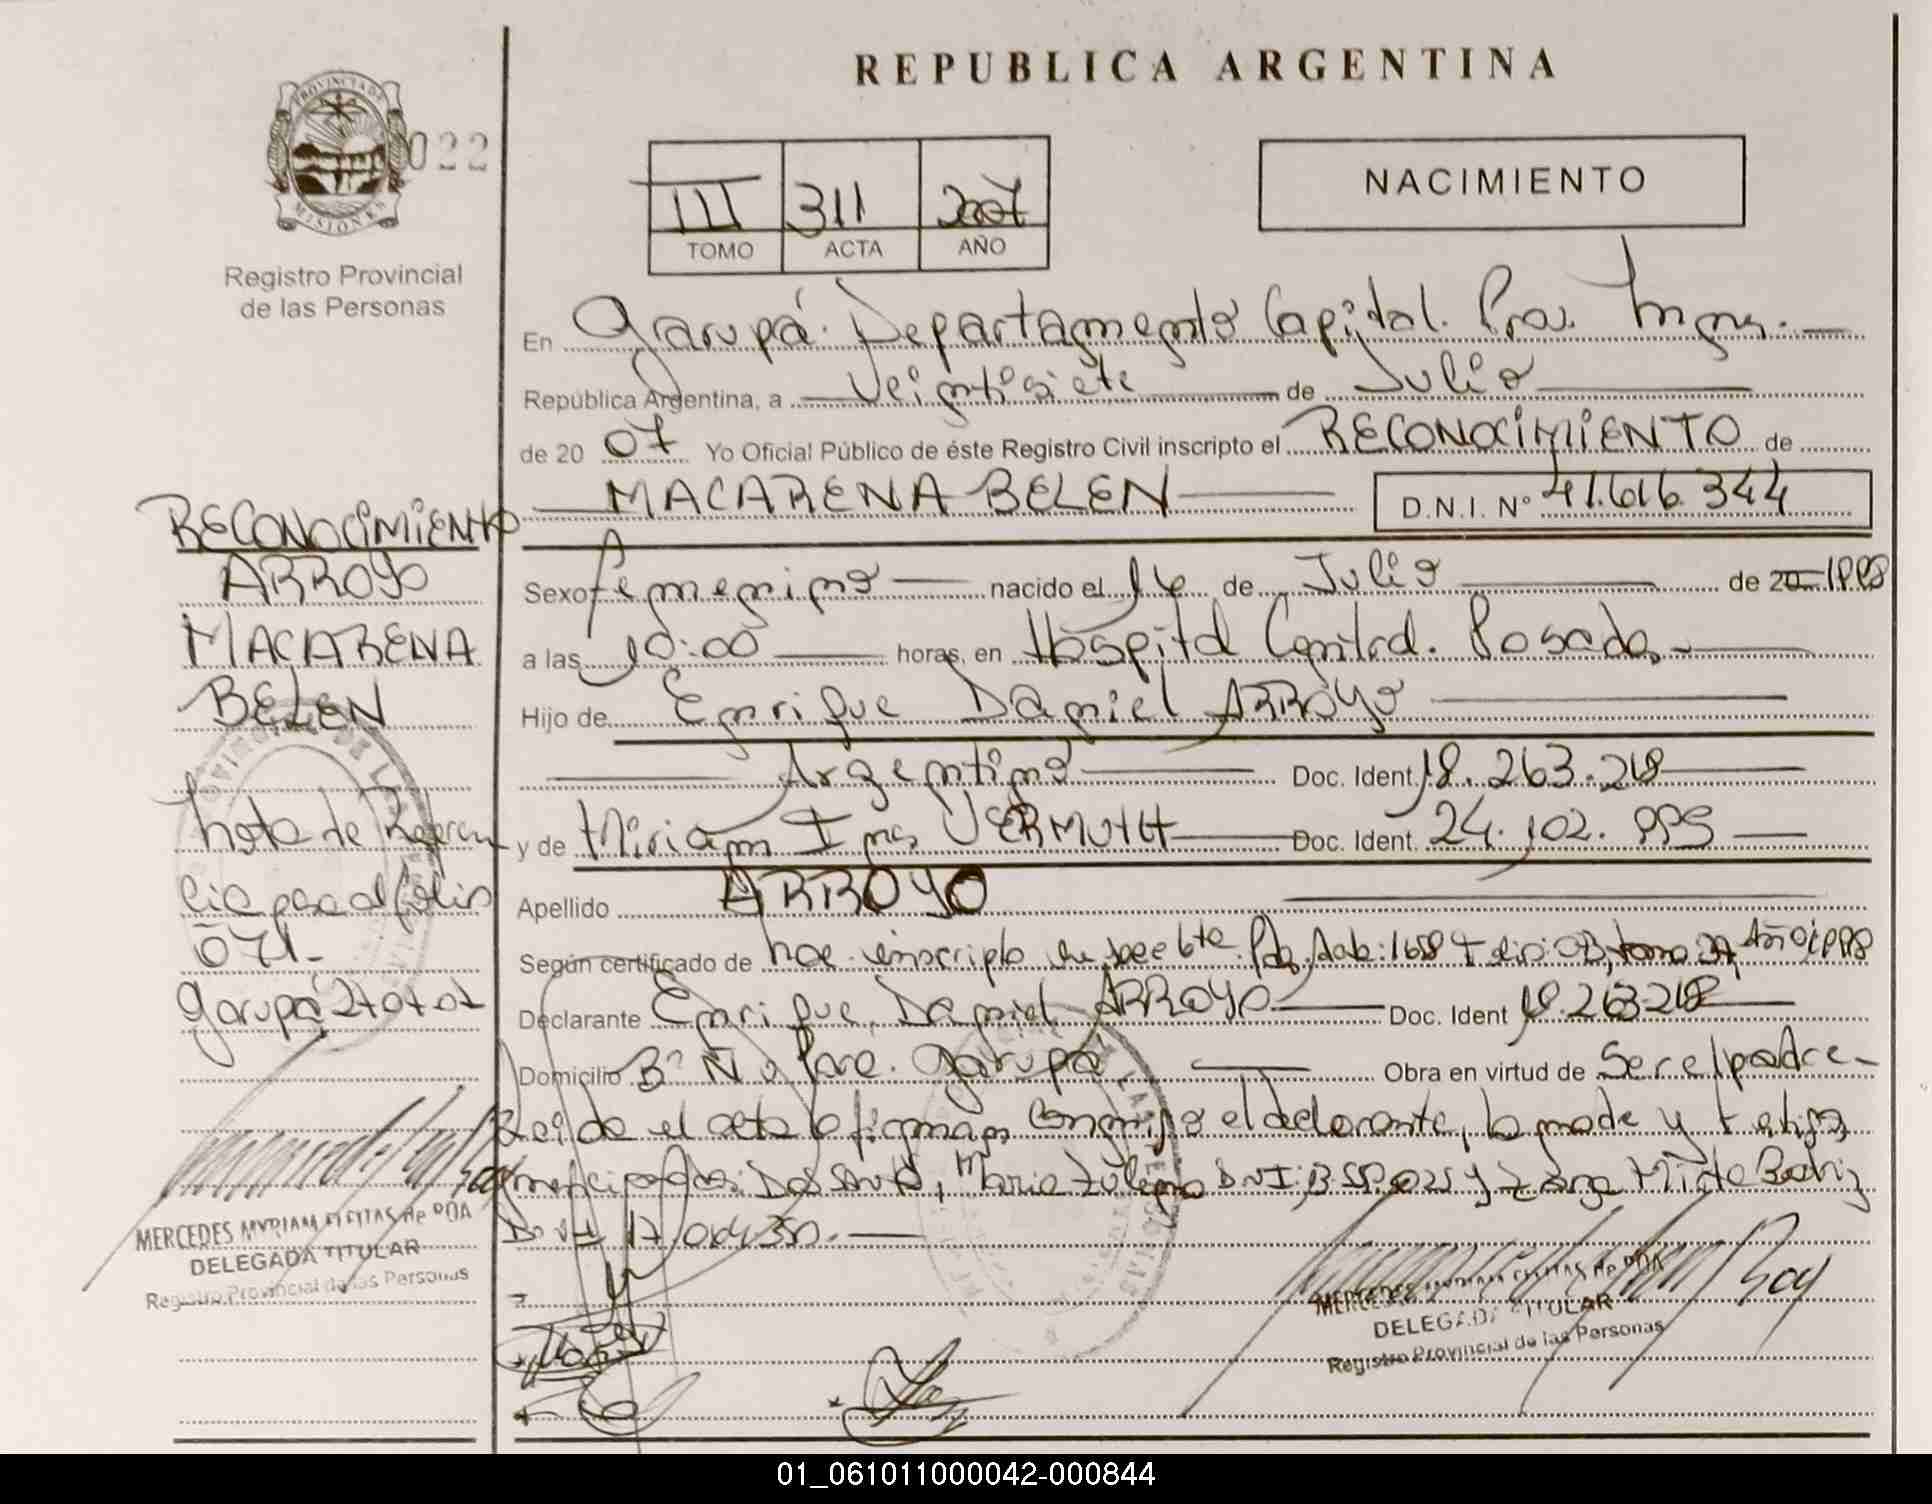 REPUBLICA ARGENTINA
PROVINCIA DE
MISIONES
022
Registro Provincial
de las Personas
III 311 2007
TOMO ACTA AÑO
NACIMIENTO
En Garupá. Departamento Capital. Prov. Mnes.
República Argentina, a Veintisiete de Julio
de 20 07 Yo Oficial Público de éste Registro Civil inscripto el RECONOCIMIENTO de
MACARENA BELEN D.N.I. Nº 41.616.344
Sexo femenino nacido el 16 de Julio de 20 1998
a las 10:00 horas, en Hospital Central. Posadas
Hijo de Enrique Daniel ARROYO
Argentino Doc. Ident. 18.263.218
y de Miriam Ines VERMUTH Doc. Ident. 24.102.995
Apellido ARROYO
Según certificado de inscripto 1998
Declarante Enrique Daniel ARROYO Doc. Ident 18.263.218
Domicilio Bº Ñu Pora. Garupá Obra en virtud de Ser el padre
Leida el acta la firman conmigo el declarante, la madre y testigos
Dos Santos, Maria Zulema DNI: y Mirta Beatriz
DNI 17.
RECONOCIMIENTO
ARROYO
MACARENA
BELEN
Nota de Referen
cia para al folio
071-
Garupá 27-07-07
MERCEDES MYRIAM FLEITAS de ROA
DELEGADA TITULAR
Registro Provincial de las Personas
MERCEDES MYRIAM FLEITAS de ROA
DELEGADA TITULAR
Registro Provincial de las Personas
01_061011000042-000844